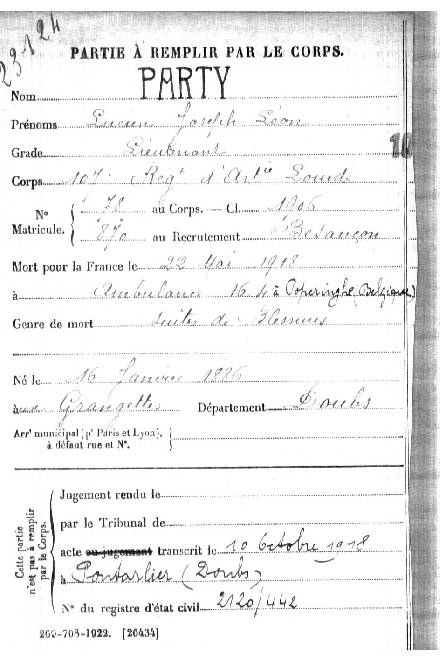 23-124
PARTIE À REMPLIR PAR LE CORPS.
Nom PARTY
Prénoms Lucien Joseph Léon
Grade Lieutenant
Corps 107e Regt d'Artie Lourde
N° Matricule. { 78 au Corps. — Cl. 1906
870 au Recrutement Besançon
Mort pour la France le 22 Mai 1918
à Ambulance 16 4 à Poperinghe (Belgique)
Genre de mort suites de Blessures
Né le 16 Janvier 1886
aux Grangettes Département Doubs
Arrt municipal (pr Paris et Lyon), à défaut rue et N°.
Cette partie n'est pas à remplir par le Corps.
Jugement rendu le
par le Tribunal de
acte ou jugement transcrit le 10 Octobre 1918
à Pontarlier (Doubs)
N° du registre d'état civil 2120/442
269-708-1922. [26434]